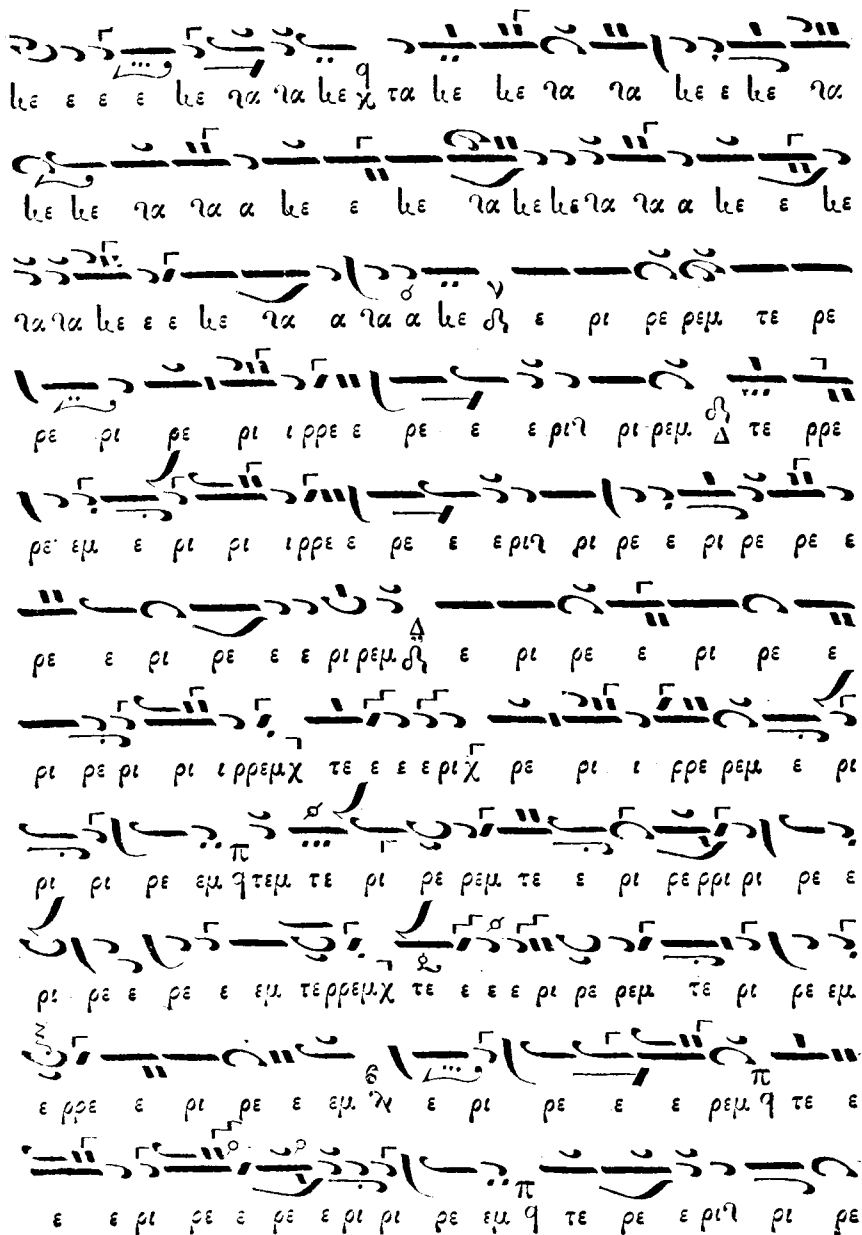 νε ε ε ε νε να να νε χ τα νε νε να να νε ε νε να
νε νε να να α νε ε νε να νε νε να να α νε ε νε
να να νε ε ε νε να α να α νε ε ρι ρε ρεμ τε ρε
ρε ρι ρε ρι ι ρρε ε ρε ε ε ριν ρι ρεμ Δ τε ρρε
ρε εμ ε ρι ρι ι ρρε ε ρε ε ε ριν ρι ρε ε ρι ρε ρε ε
ρε ε ρι ρε ε ε ρι ρεμ Δ ε ρι ρε ε ρι ρε ε
ρι ρε ρι ρι ι ρρεμ χ τε ε ε ε ρι χ ρε ρι ι ρρε ρεμ ε ρι
ρι ρι ρε εμ π q τεμ τε ρι ρε ρεμ τε ε ρι ρε ρρι ρι ρε ε
ρι ρε ε ρε ε εμ τε ρρεμ χ τε ε ε ε ρι ρε ρεμ τε ρι ρε εμ
ε ρρε ε ρι ρε ε εμ ε ρι ρε ε ε ρεμ π q τε ε
ε ε ρι ρε ε ρε ε ρι ρι ρε εμ π q τε ρε ε ριν ρι ρε